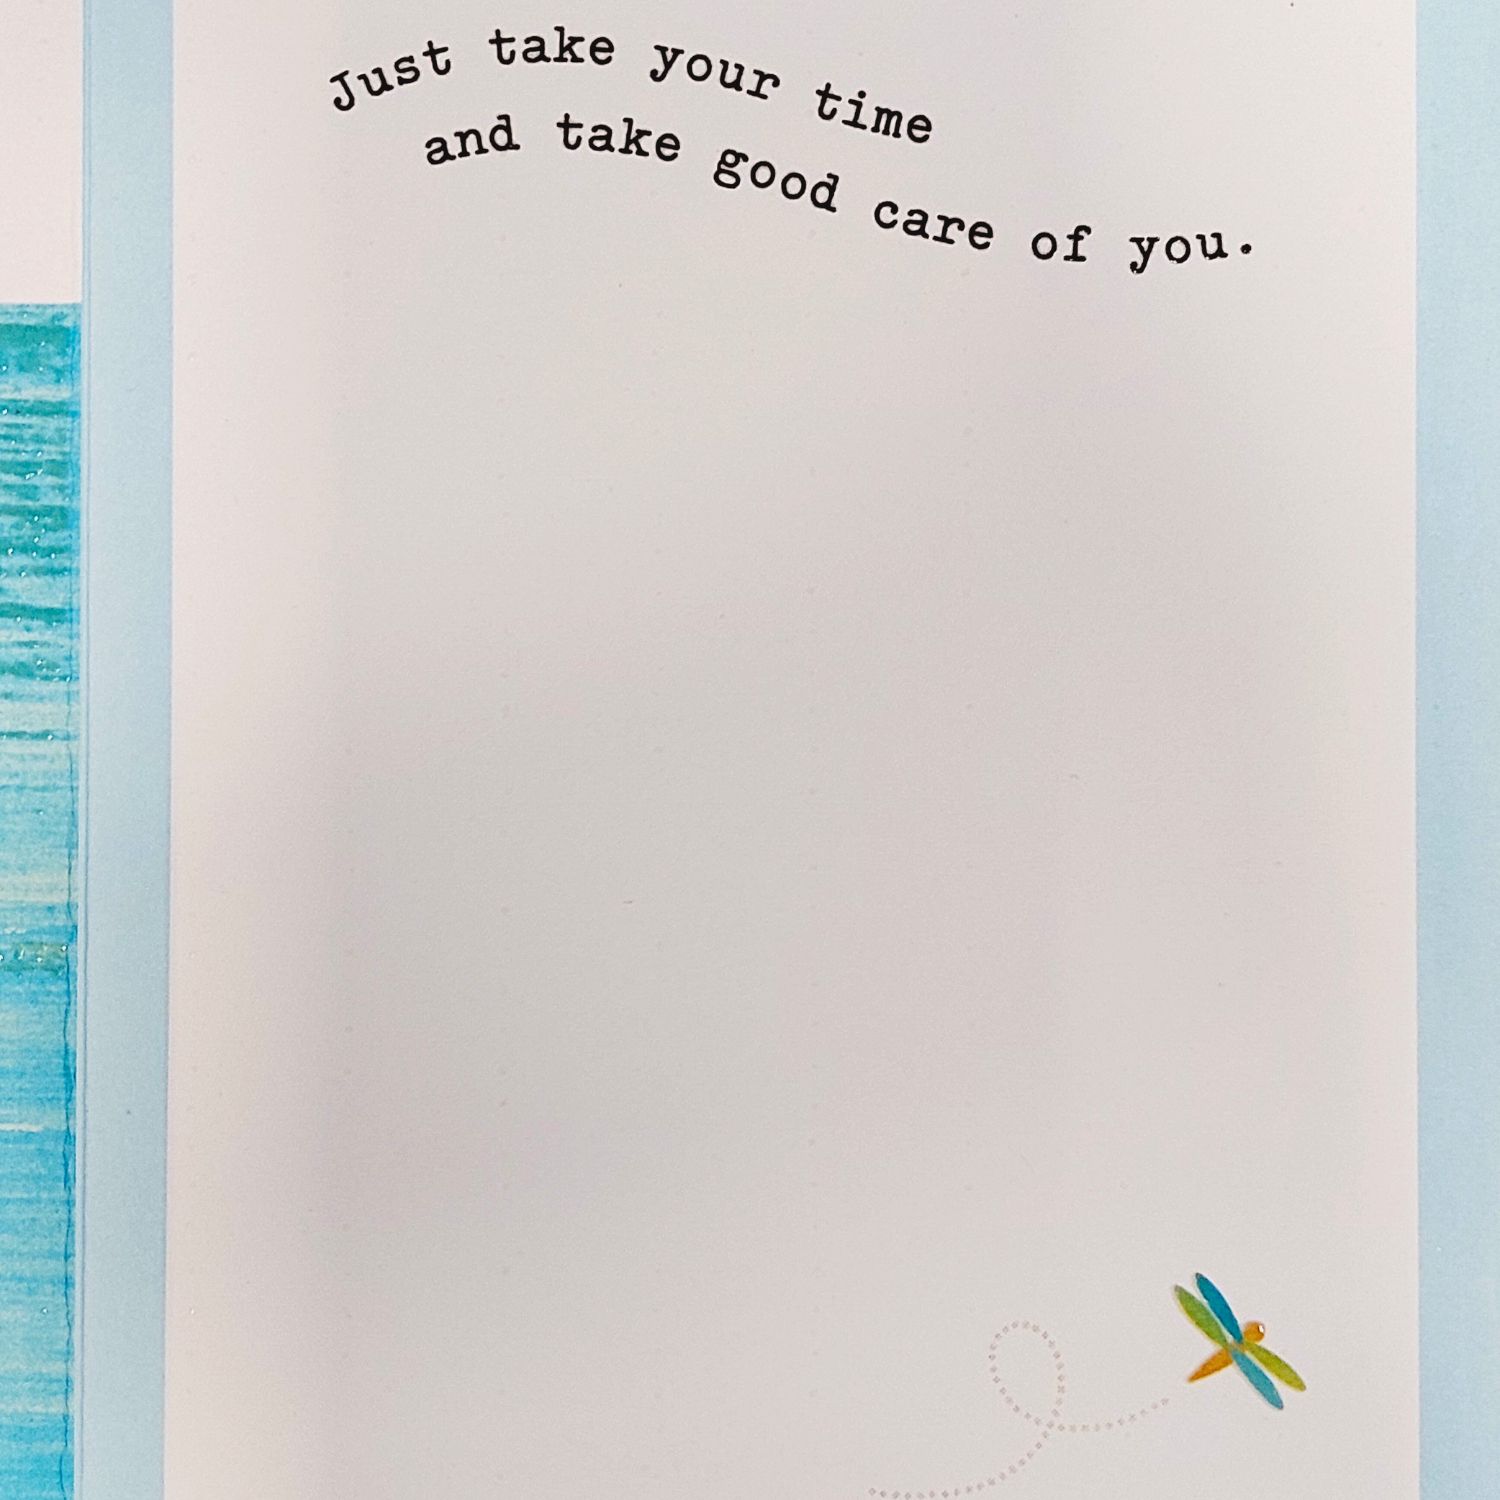 Just take your time
and take good care of you.